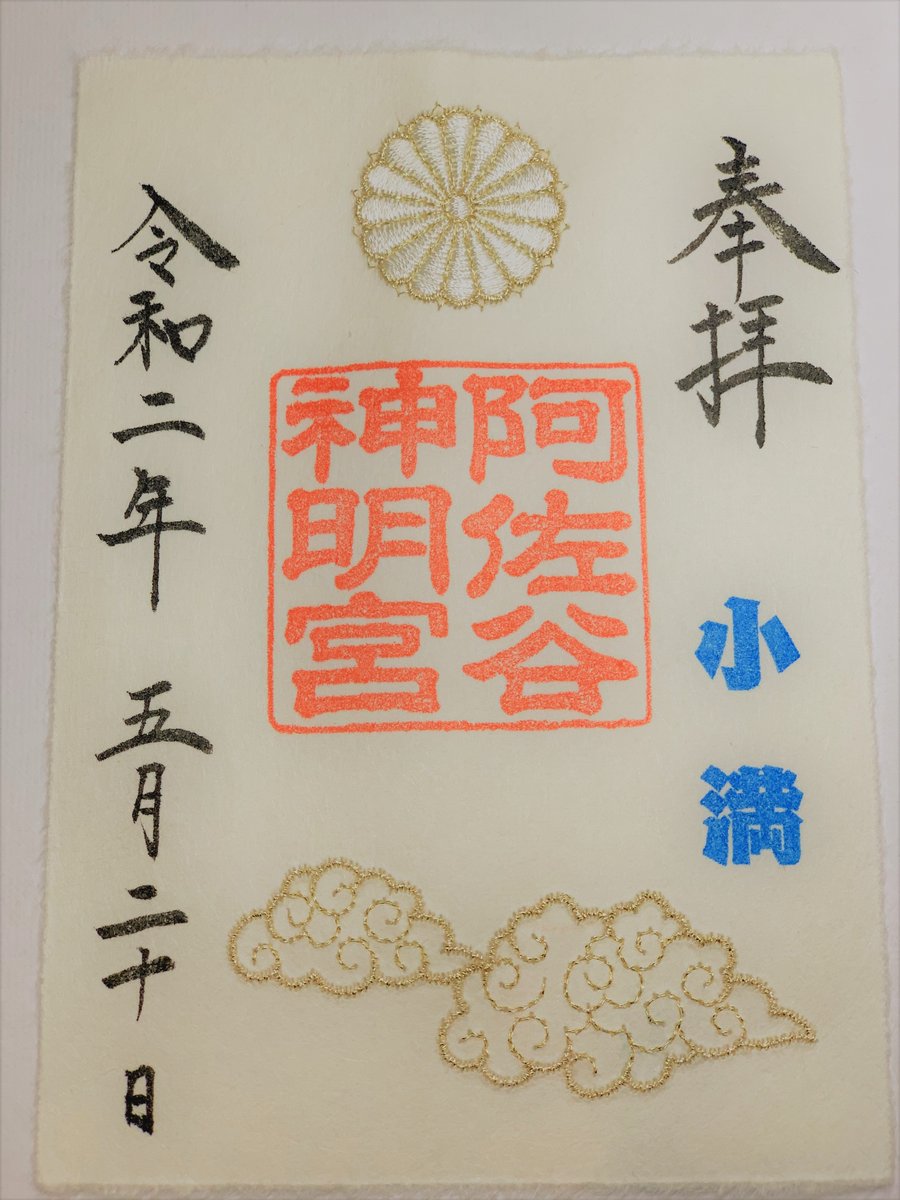 奉拝
小満
阿佐谷
神明宮
令和二年 五月二十日